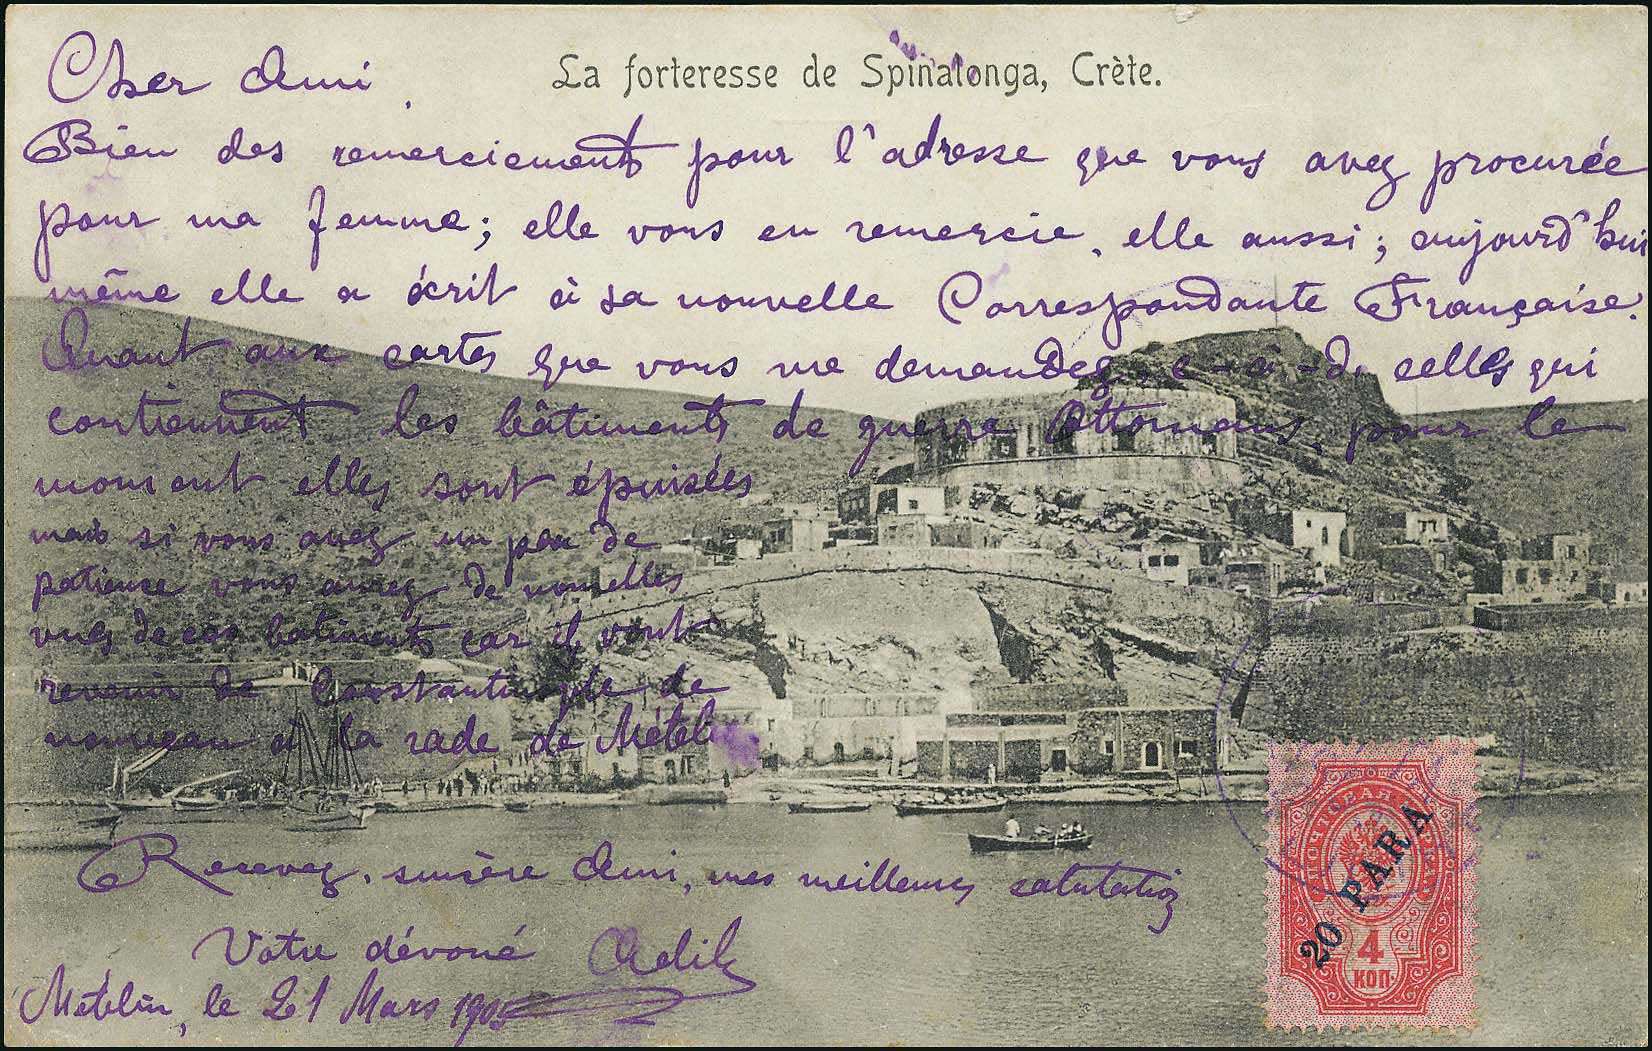 La forteresse de Spinalonga, Crète.
Cher Ami,
Bien des remerciements pour l'adresse que vous avez procurée
pour ma femme; elle vous en remercie, elle aussi; aujourd'hui
même elle a écrit à sa nouvelle Correspondante Française.
Quant aux cartes que vous me demandez, c-à-d. celles qui
contiennent les bâtiments de guerre Ottomans, pour le
moment elles sont épuisées
mais si vous avez un peu de
patience vous aurez de nouvelles
vues de ces batiments car ils vont
revenir de Constantinople de
nouveau à la rade de Mételin
Recevez, sincère Ami, mes meilleures salutations
Votre dévoué Adil
Mételin, le 21 Mars 1905
20 PARA
4
КОП